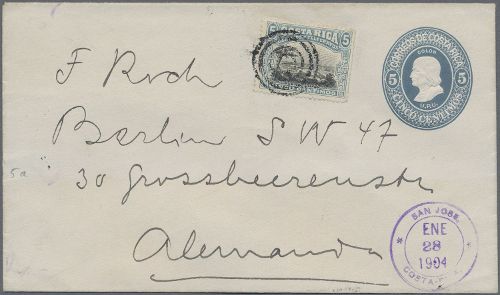 COSTA RICA
5 5
CENTIMOS
CORREOS DE COSTA RICA
COLON
5 5
U.P.U.
CINCO CENTIMOS
F Roch
Berlin S W 47
5a
30 Grossbeerenstr
Alemania
SAN JOSE
ENE
28
1904
COSTA-RICA